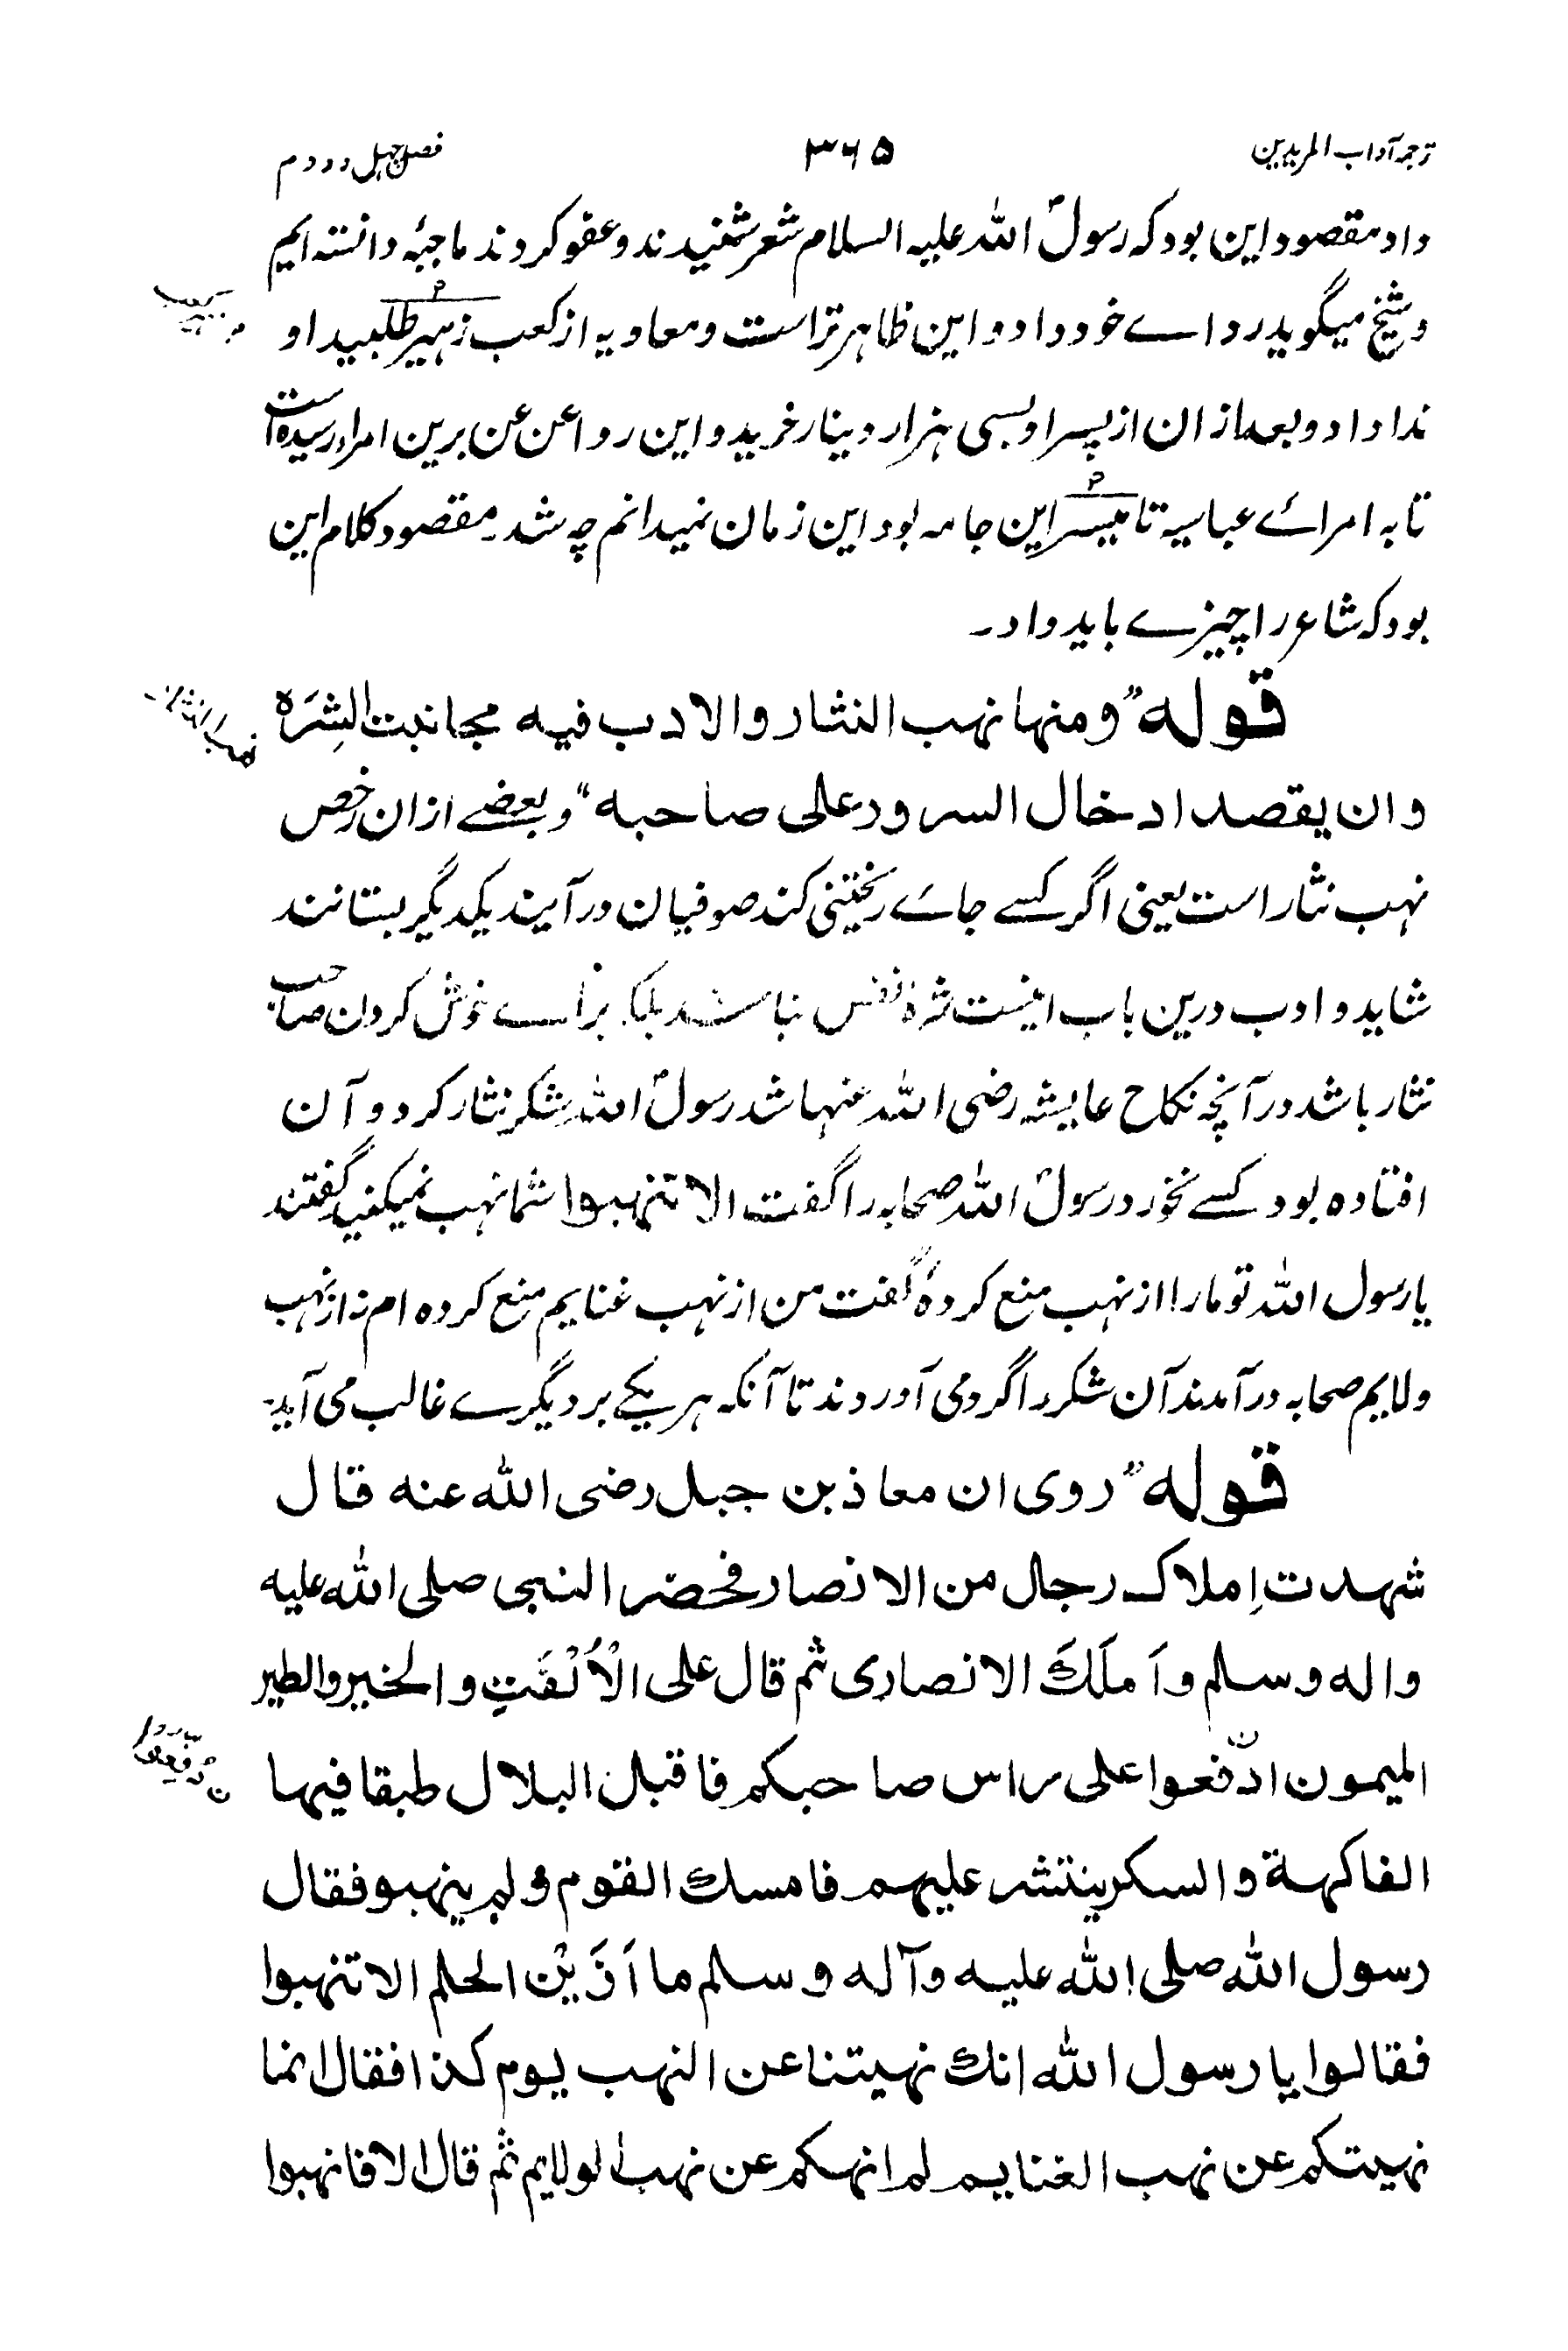 ترجمه آداب المریدین ۳۶۵ فصل چهل و دوم
داد مقصود این بود که رسولؐ الله علیه السلام شعر شنیدند و عفو کردند ما جبّه دانسته ایم
و شیخ میگوید رداے خود داد و این ظاهر تر است و معاویه از کعب زهیر طلبید او
نداد او و بعد ازان از پسر او بسی هزار دینار خرید و این ردا عن عن برین امراء رسیده است
تا به امرائے عباسیه تا میسر این جامه بود این زمان نمیدانم چه شد۔ مقصود کلام این
بود که شاعر را چیزے باید داد۔
قوله ”ومنها نهب النثار والادب فیه مجانبت الشِرَه
وان یقصد ادخال السرور علی صاحبه“ و بعضے ازان رخص
نهب نثار است یعنی اگر کسے جائے ریختنی کند صوفیان در آیند یکدیگر بستانند
شاید و ادب درین باب اینست شرهٔ نفس نباشد بلکه براے خوش کردن صاحب
نثار باشد در آنچه نکاح عایشه رضی الله عنها شد رسولؐ الله شکر نثار کرد و آن
افتاده بود کسے نخورد رسولؐ الله صحابه را گفت الا تنهبوا شما نهب نمیکنید گفتند
یا رسول الله تو ما را از نهب منع کردهٔ گفت من از نهب غنایم منع کرده ام نه از نهب
ولایم صحابه در آمدند آن شکر را گرد می آوردند تا آنکه هر یکے بر دیگرے غالب می آید۔
قوله ”روی ان معاذ بن جبل رضی الله عنه قال
شهدت اِملاک رجال من الانصار فحضر النبی صلی الله علیه
واله وسلم واَملَكَ الانصاری ثم قال علی الْاُلْفَتِ والخیر والطیر
المیمون ادّفعوا علی راس صاحبکم فاقبل البلال طبقا فیها
الفاکهة والسکر ینتثر علیهم فامسك القوم ولم ینهبو فقال
رسول الله صلی الله علیه وآله وسلم ما اَزَیْن الحلم الا تنهبوا
فقالوا یا رسول الله انك نهیتنا عن النهب یوم کذا فقال انما
نهیتکم عن نهب الغنایم لم انهکم عن نهب الولایم ثم قال الا فانهبوا
نهب النثار۔